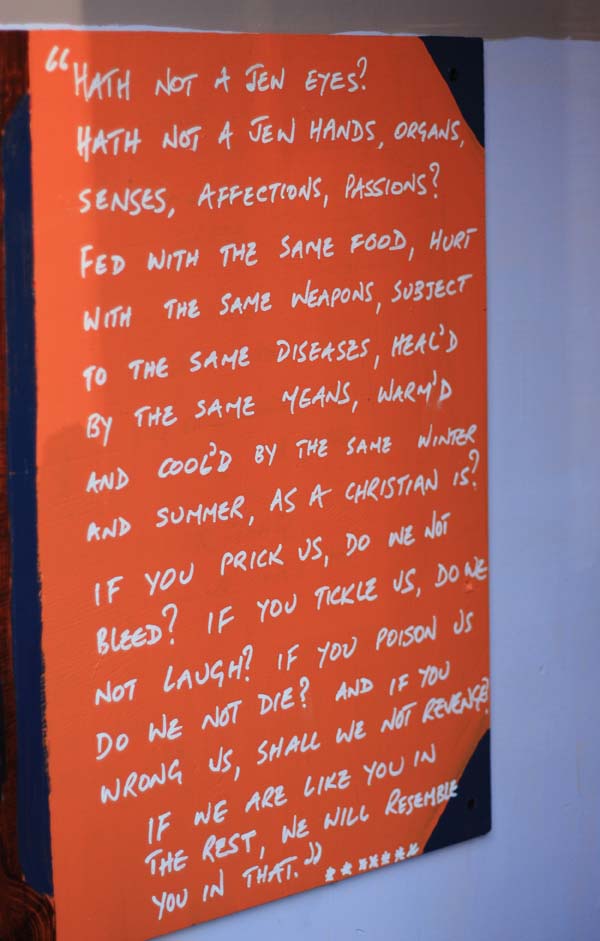 “HATH NOT A JEW EYES?
HATH NOT A JEW HANDS, ORGANS,
SENSES, AFFECTIONS, PASSIONS?
FED WITH THE SAME FOOD, HURT
WITH THE SAME WEAPONS, SUBJECT
TO THE SAME DISEASES, HEAL'D
BY THE SAME MEANS, WARM'D
AND COOL'D BY THE SAME WINTER
AND SUMMER, AS A CHRISTIAN IS?
IF YOU PRICK US, DO WE NOT
BLEED? IF YOU TICKLE US, DO WE
NOT LAUGH? IF YOU POISON US
DO WE NOT DIE? AND IF YOU
WRONG US, SHALL WE NOT REVENGE?
IF WE ARE LIKE YOU IN
THE REST, WE WILL RESEMBLE
YOU IN THAT.”